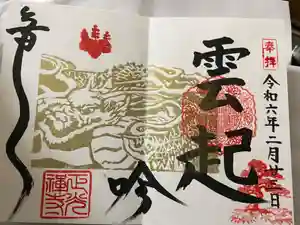 奉拝
令和六年二月廿三日
雲起
竜吟
正光
禅寺